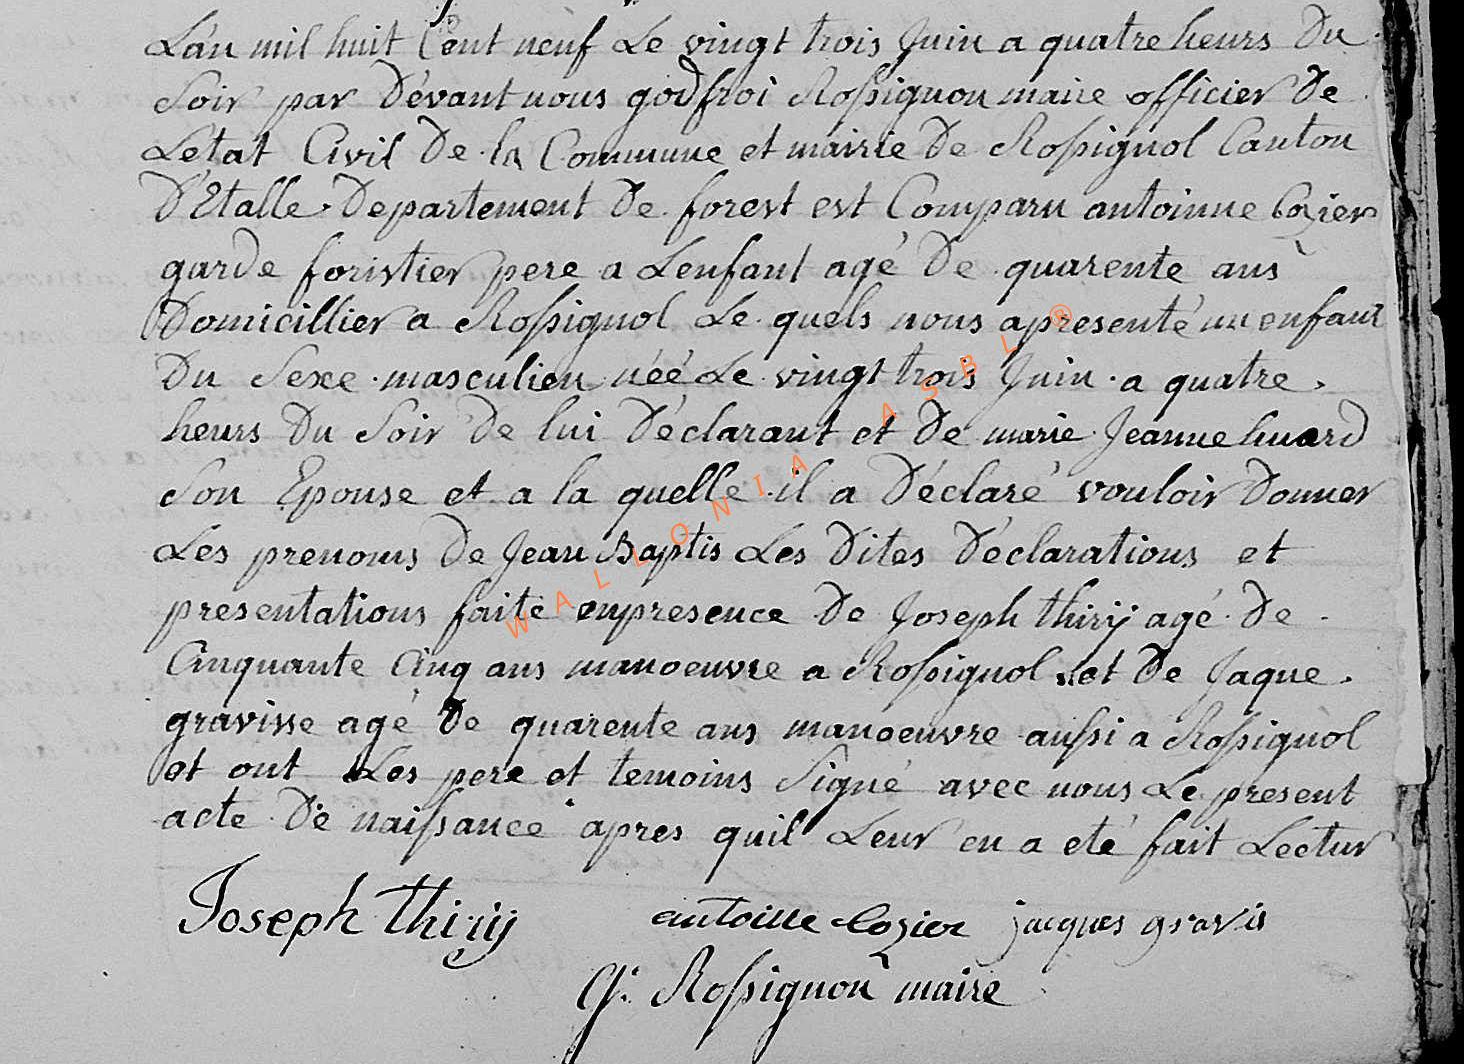 L'an mil huit Cent neuf Le vingt trois Juin a quatre heurs Du
Soir par Dévant nous godfroi Rossignon maire officier De
Létat Civil De la Commune et mairie De Rossignol Canton
D'Etalle Departement De forest est Comparu antoinne Cozier
garde foristier pere a Lenfant agé De quarente ans
Domicillier a Rossignol Le quels nous apresenté un enfant
Du Sexe masculien néé Le vingt trois Juin a quatre
heurs Du Soir De lui Déclarant et De marie Jeanne huard
Son Epouse et a la quelle il a Déclaré vouloir Donner
Les prenoms De Jean Baptis Les Dites Déclarations et
presentations faite enpresence De Joseph thirÿ agé De
Cinquante Cinq ans manoeuvre a Rossignol et De Jaque
gravisse agé De quarente ans manoeuvre aussi a Rossignol
et ont Les pere et temoins Signé avec nous Le present
acte De naissance apres quil Leur en a eté fait Lectur
Joseph thirÿ antoine Cozier jacques gravis
G: Rossignon maire
WALLONIA ASBL ®